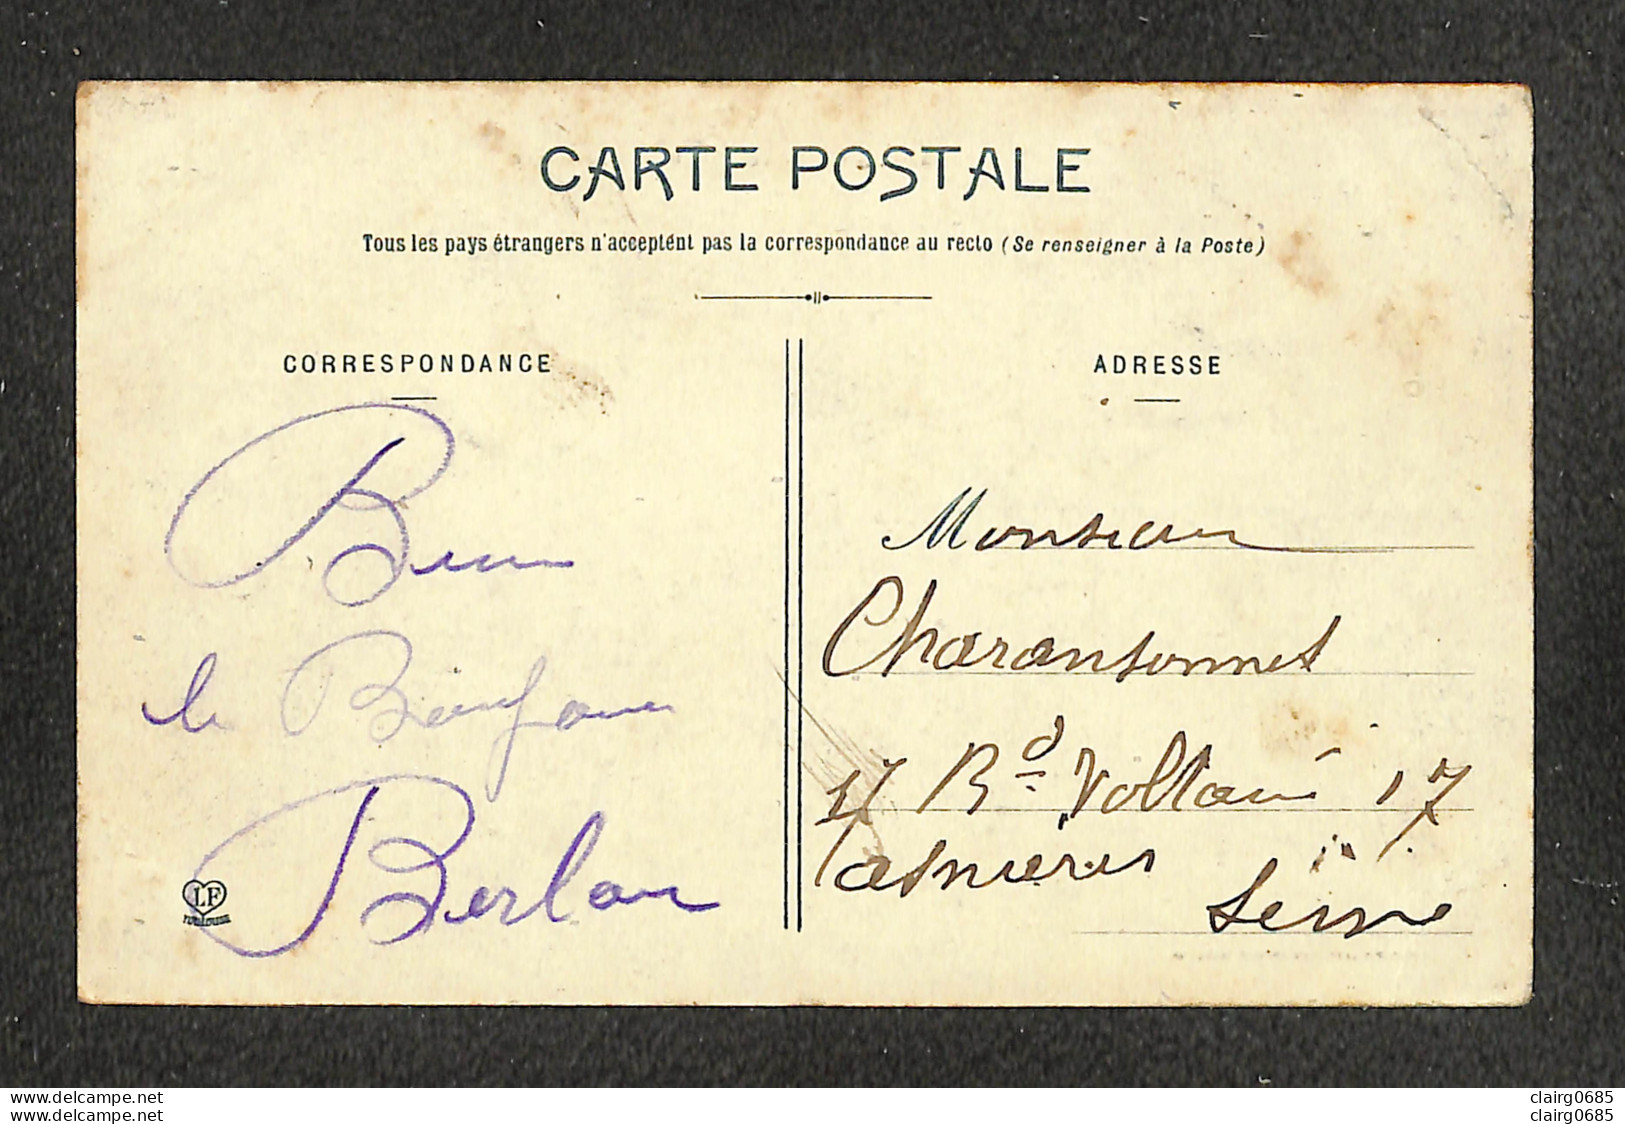 CARTE POSTALE
Tous les pays étrangers n'acceptent pas la correspondance au recto (Se renseigner à la Poste)
CORRESPONDANCE
Berlan
LF
ADRESSE
Monsieur
Charansonnet
17 Bd Voltaire 17
asnieres
Seine
www.delcampe.net
www.delcampe.net
clairg0685
clairg0685